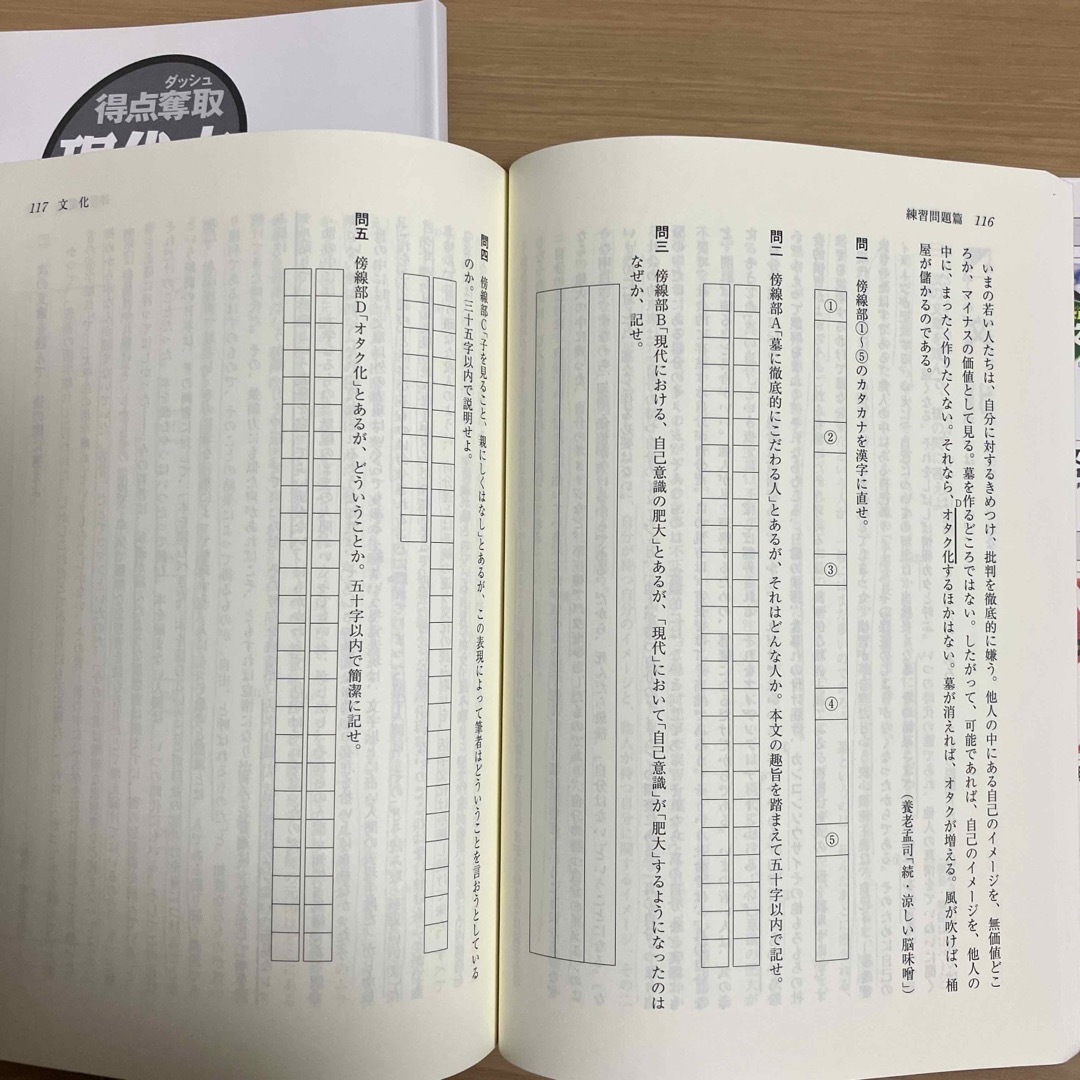 ダッシュ
得点奪取
練習問題篇 116
いまの若い人たちは、自分に対するきめつけ、批判を徹底的に嫌う。他人の中にある自己のイメージを、無価値どこ
ろか、マイナスの価値として見る。墓を作るどころではない。したがって、可能であれば、自己のイメージを、他人の
中に、まったく作りたくない。それなら、オタク化するほかはない。墓が消えれば、オタクが増える。風が吹けば、桶
D
屋が儲かるのである。
（養老孟司「続・涼しい脳味噌」）
問一 傍線部①～⑤のカタカナを漢字に直せ。
①
②
③
④
⑤
問二 傍線部A「墓に徹底的にこだわる人」とあるが、それはどんな人か。本文の趣旨を踏まえて五十字以内で記せ。
問三 傍線部B「現代における、自己意識の肥大」とあるが、「現代」において「自己意識」が「肥大」するようになったのは
なぜか、記せ。
117 文化
問四 傍線部C「子を見ること、親にしくはなし」とあるが、この表現によって筆者はどういうことを言おうとしている
のか。三十五字以内で説明せよ。
問五 傍線部D「オタク化」とあるが、どういうことか。五十字以内で簡潔に記せ。